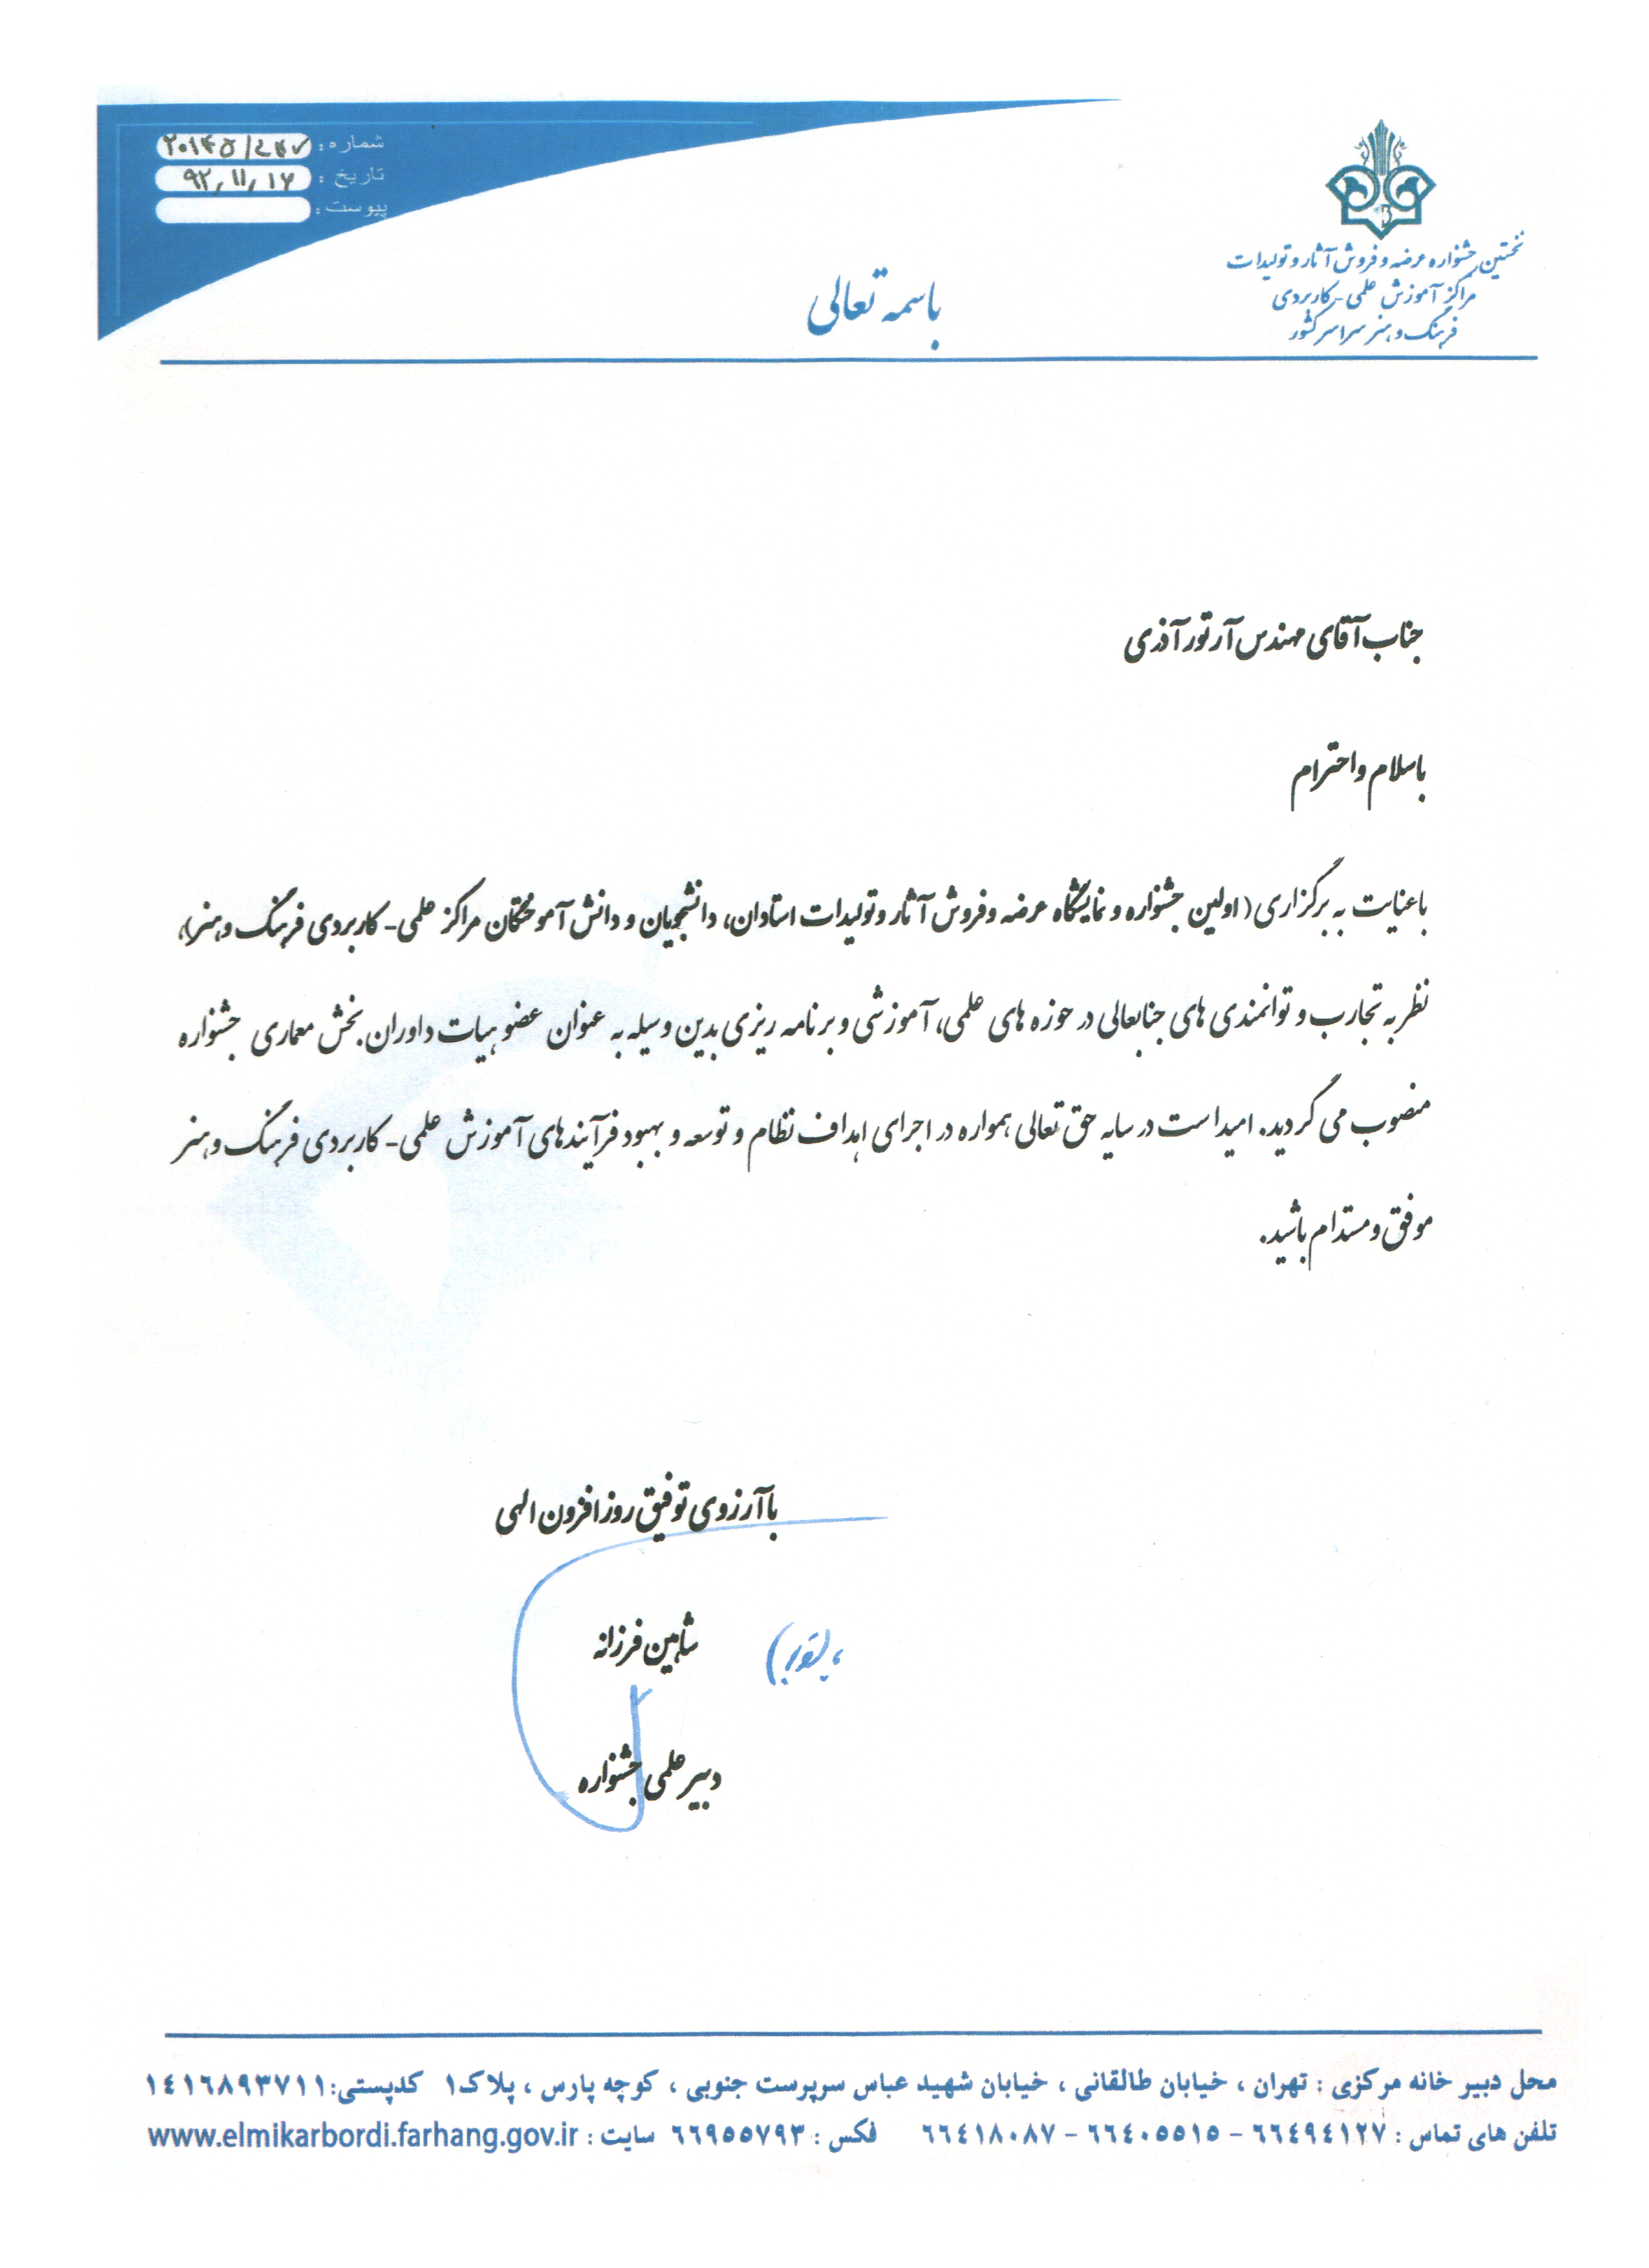 شماره : ۲۰۱۴۵/۲۴۷
تاریخ : ۹۲,۱۱,۱۶
پیوست :
نخستین جشنواره عرضه و فروش آثار و تولیدات
مراکز آموزش علمی-کاربردی
فرهنگ و هنر سراسر کشور
باسمه تعالی
جناب آقای مهندس آرتور آذری
باسلام و احترام
باعنایت به برگزاری (اولین جشنواره و نمایشگاه عرضه و فروش آثار و تولیدات استادان، دانشجویان و دانش آموختگان مراکز علمی- کاربردی فرهنگ و هنر)،
نظر به تجارب و توانمندی های جنابعالی در حوزه های علمی، آموزشی و برنامه ریزی بدین وسیله به عنوان عضو هیات داوران بخش معماری جشنواره
منصوب می گردید. امید است در سایه حق تعالی همواره در اجرای اهداف نظام و توسعه و بهبود فرآیندهای آموزش علمی- کاربردی فرهنگ و هنر
موفق و مستدام باشید.
با آرزوی توفیق روز افزون الهی
شاهین فرزانه
دبیر علمی جشنواره
محل دبیر خانه مرکزی : تهران ، خیابان طالقانی ، خیابان شهید عباس سرپرست جنوبی ، کوچه پارس ، پلاک۱ کدپستی:۱٤۱٦۸۹۳۷۱۱
تلفن های تماس : ٦٦٤۹٤۱۲۷ - ٦٦٤۰۵۵۱۵ - ٦٦٤۱۸۰۸۷ فکس : ٦٦۹۵۵۷۹۳ سایت : www.elmikarbordi.farhang.gov.ir